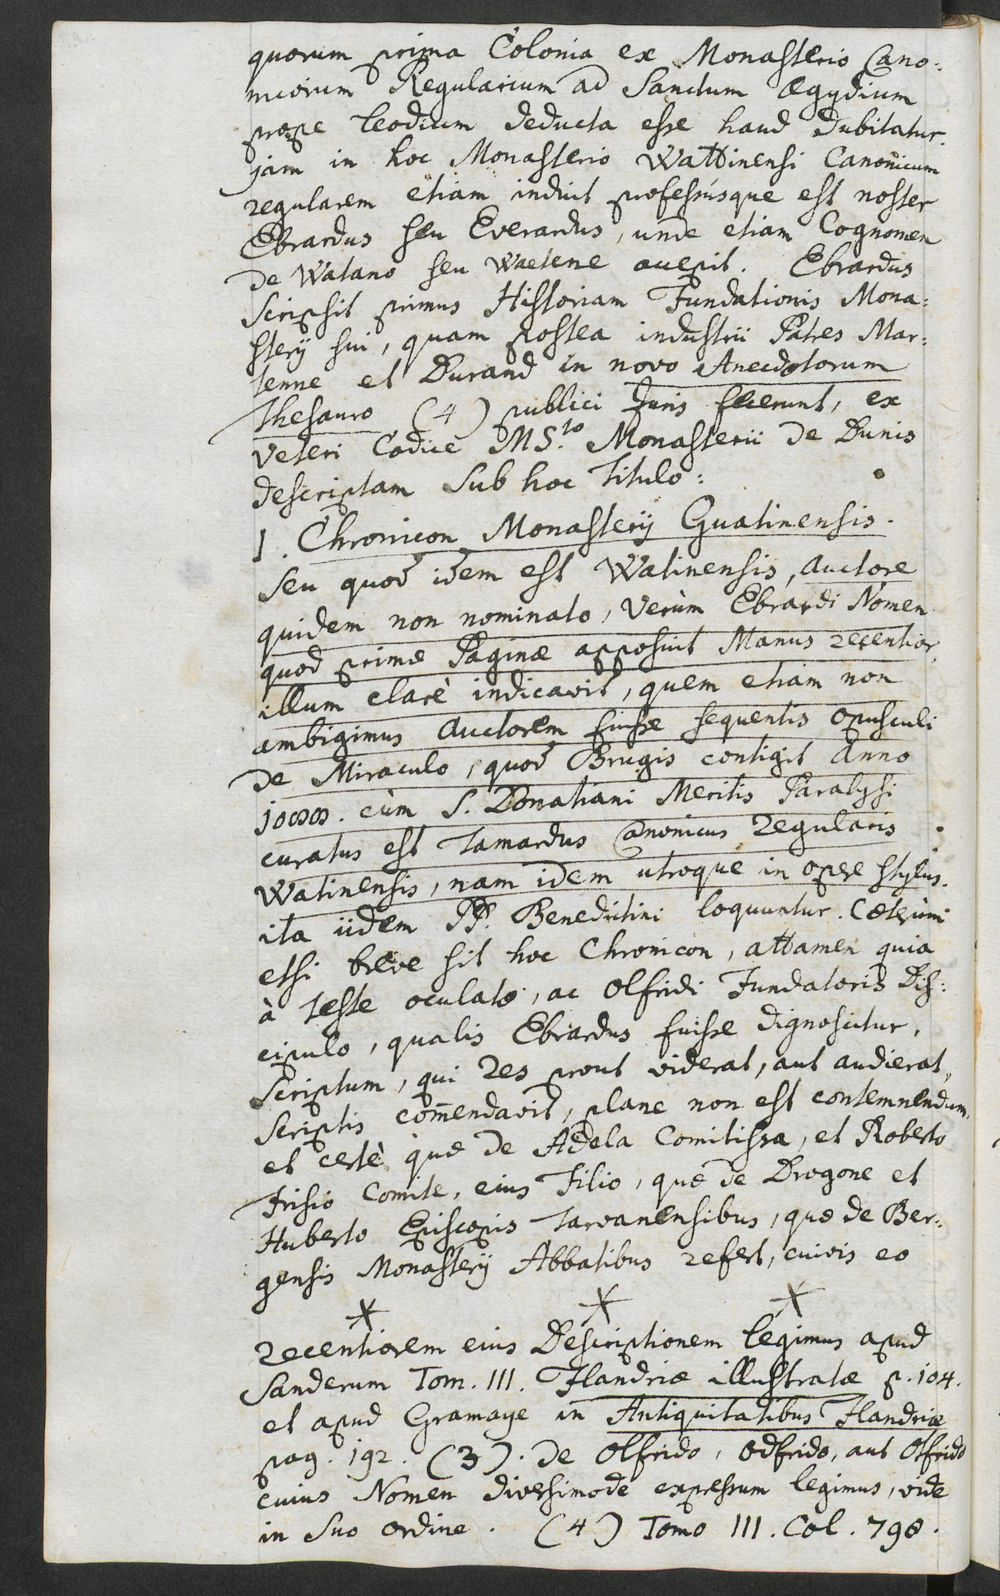 quorum prima Colonia ex Monasterio Cano:
nicorum Regularium ad Sanctum Ægydium
prope Leodium deducta esse haud dubitatur.
jam in hoc Monasterio Wattinensi Canonicum
regularem etiam induit professusque est noster
Ebrardus seu Everardus, unde etiam Cognomen
de Watano seu Waetene accepit. Ebrardus
Scripsit primus Historiam Fundationis Mona:
sterij sui, quam postea industrii Patres Mar:
tenne et Durand in novo Anecdotorum
Thesauro (4) publici Juris fecerunt, ex
veteri Codice MS.to Monasterii de Dunis
descriptam sub hoc Titulo:
1. Chronicon Monasterij Guatinensis.
seu quod idem est Watinensis, Auctore
quidem non nominato, verùm Ebrardi Nomen
quod primæ Paginæ apposuit Manus recentior,
illum clarè indicavit, quem etiam non
ambigimus Auctorem fuisse sequentis opusculi
de Miraculo, quod Brugis contigit Anno
1088. cùm S. Donatiani Meritis Paralysi
curatus est Tamardus Canonicus Regularis
Watinensis, nam idem utroque in opere stylus.
ita iidem PP. Benedictini loquuntur. Cæterùm
etsi breve sit hoc Chronicon, attamen quia
à teste oculato, ac Olfridi Fundatoris Dis:
cipulo, qualis Ebrardus fuisse dignoscitur,
scriptum, qui res prout viderat, aut audierat,
scriptis com̄endavit, plane non est contemnendum,
et certè quæ de Adela Comitissa, et Roberto
Frisio Comite, eius Filio, quæ de Drogone et
Huberto Episcopis Tarvanensibus, quæ de Ber:
gensis Monasterij Abbatibus refert, cuivis eo
recentiorem eius Descriptionem legimus apud
Sanderum Tom. III. Flandriæ illustratæ p. 104.
et apud Gramaye in Antiquitatibus Flandriæ
pag. 192. (3). de Olfrido, Odfrido, aut Otfrido
cuius Nomen diversimode expressum legimus, vide
in suo ordine. (4) Tomo III. Col. 798.